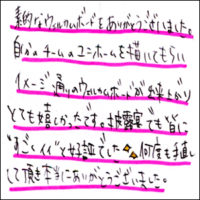 素的なウェルカムボードをありがとうございました。
自分のチームのユニホームを描いてもらい
イメージ通りのウェルカムボードが出来上がり
とても嬉しかったです。披露宴でも皆に
"すごくイイ"と好評でした 何度も手直し
して頂き本当にありがとうございました。